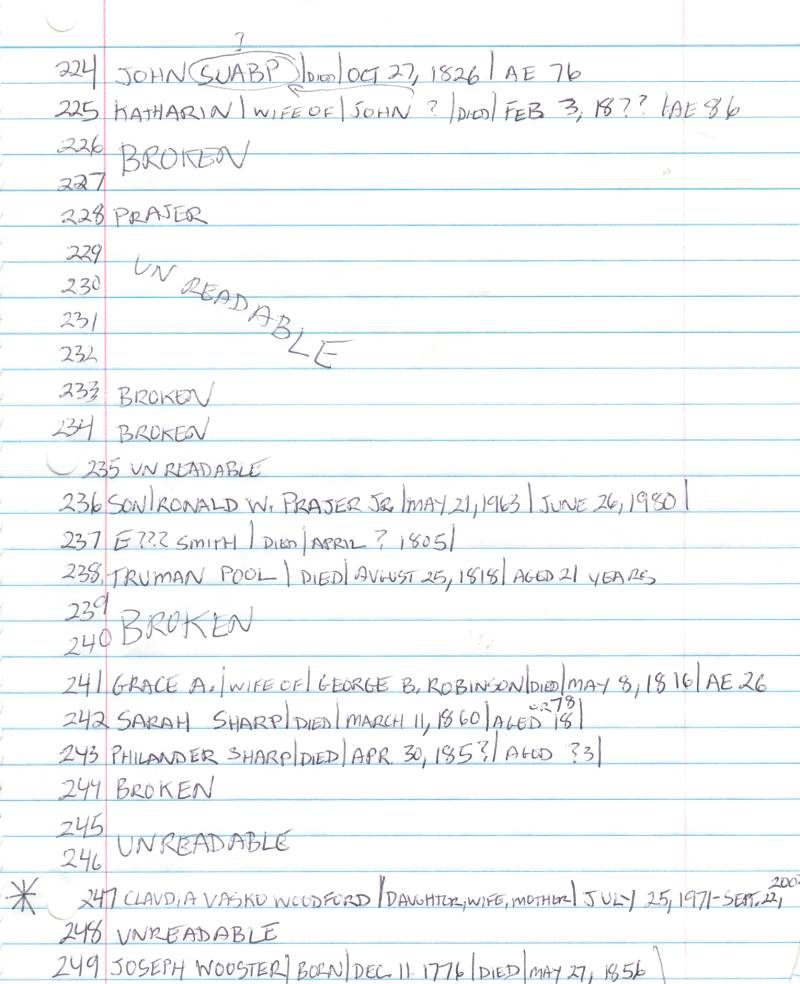 ?
224 JOHN SWABP |DIED| OCT 27, 1826 | AE 76
225 KATHARIN | WIFE OF | JOHN ? | DIED | FEB 3, 18?? | AE 86
226 BROKEN
227
228 PRAJER
229
UN READABLE
230
231
232
233 BROKEN
234 BROKEN
235 UNREADABLE
236 SON | RONALD W. PRAJER JR. | MAY 21, 1963 | JUNE 26, 1980 |
237 E??? SMITH | DIED | APRIL ? 1805 |
238. TRUMAN POOL | DIED | AUGUST 25, 1818 | AGED 21 YEARS
239
BROKEN
240
241 GRACE A. | WIFE OF | GEORGE B. ROBINSON | DIED | MAY 8, 1816 | AE 26
or 78
242 SARAH SHARP | DIED | MARCH 11, 1860 | AGED 18 |
243 PHILANDER SHARP | DIED | APR. 30, 185? | AGED ?3 |
244 BROKEN
245
UNREADABLE
246
247 CLAUDIA VASKO WOODFORD | DAUGHTER, WIFE, MOTHER | JULY 25, 1971 - SEPT. 22,
248 UNREADABLE
249 JOSEPH WOOSTER | BORN | DEC. 11 1776 | DIED | MAY 27, 1856 |